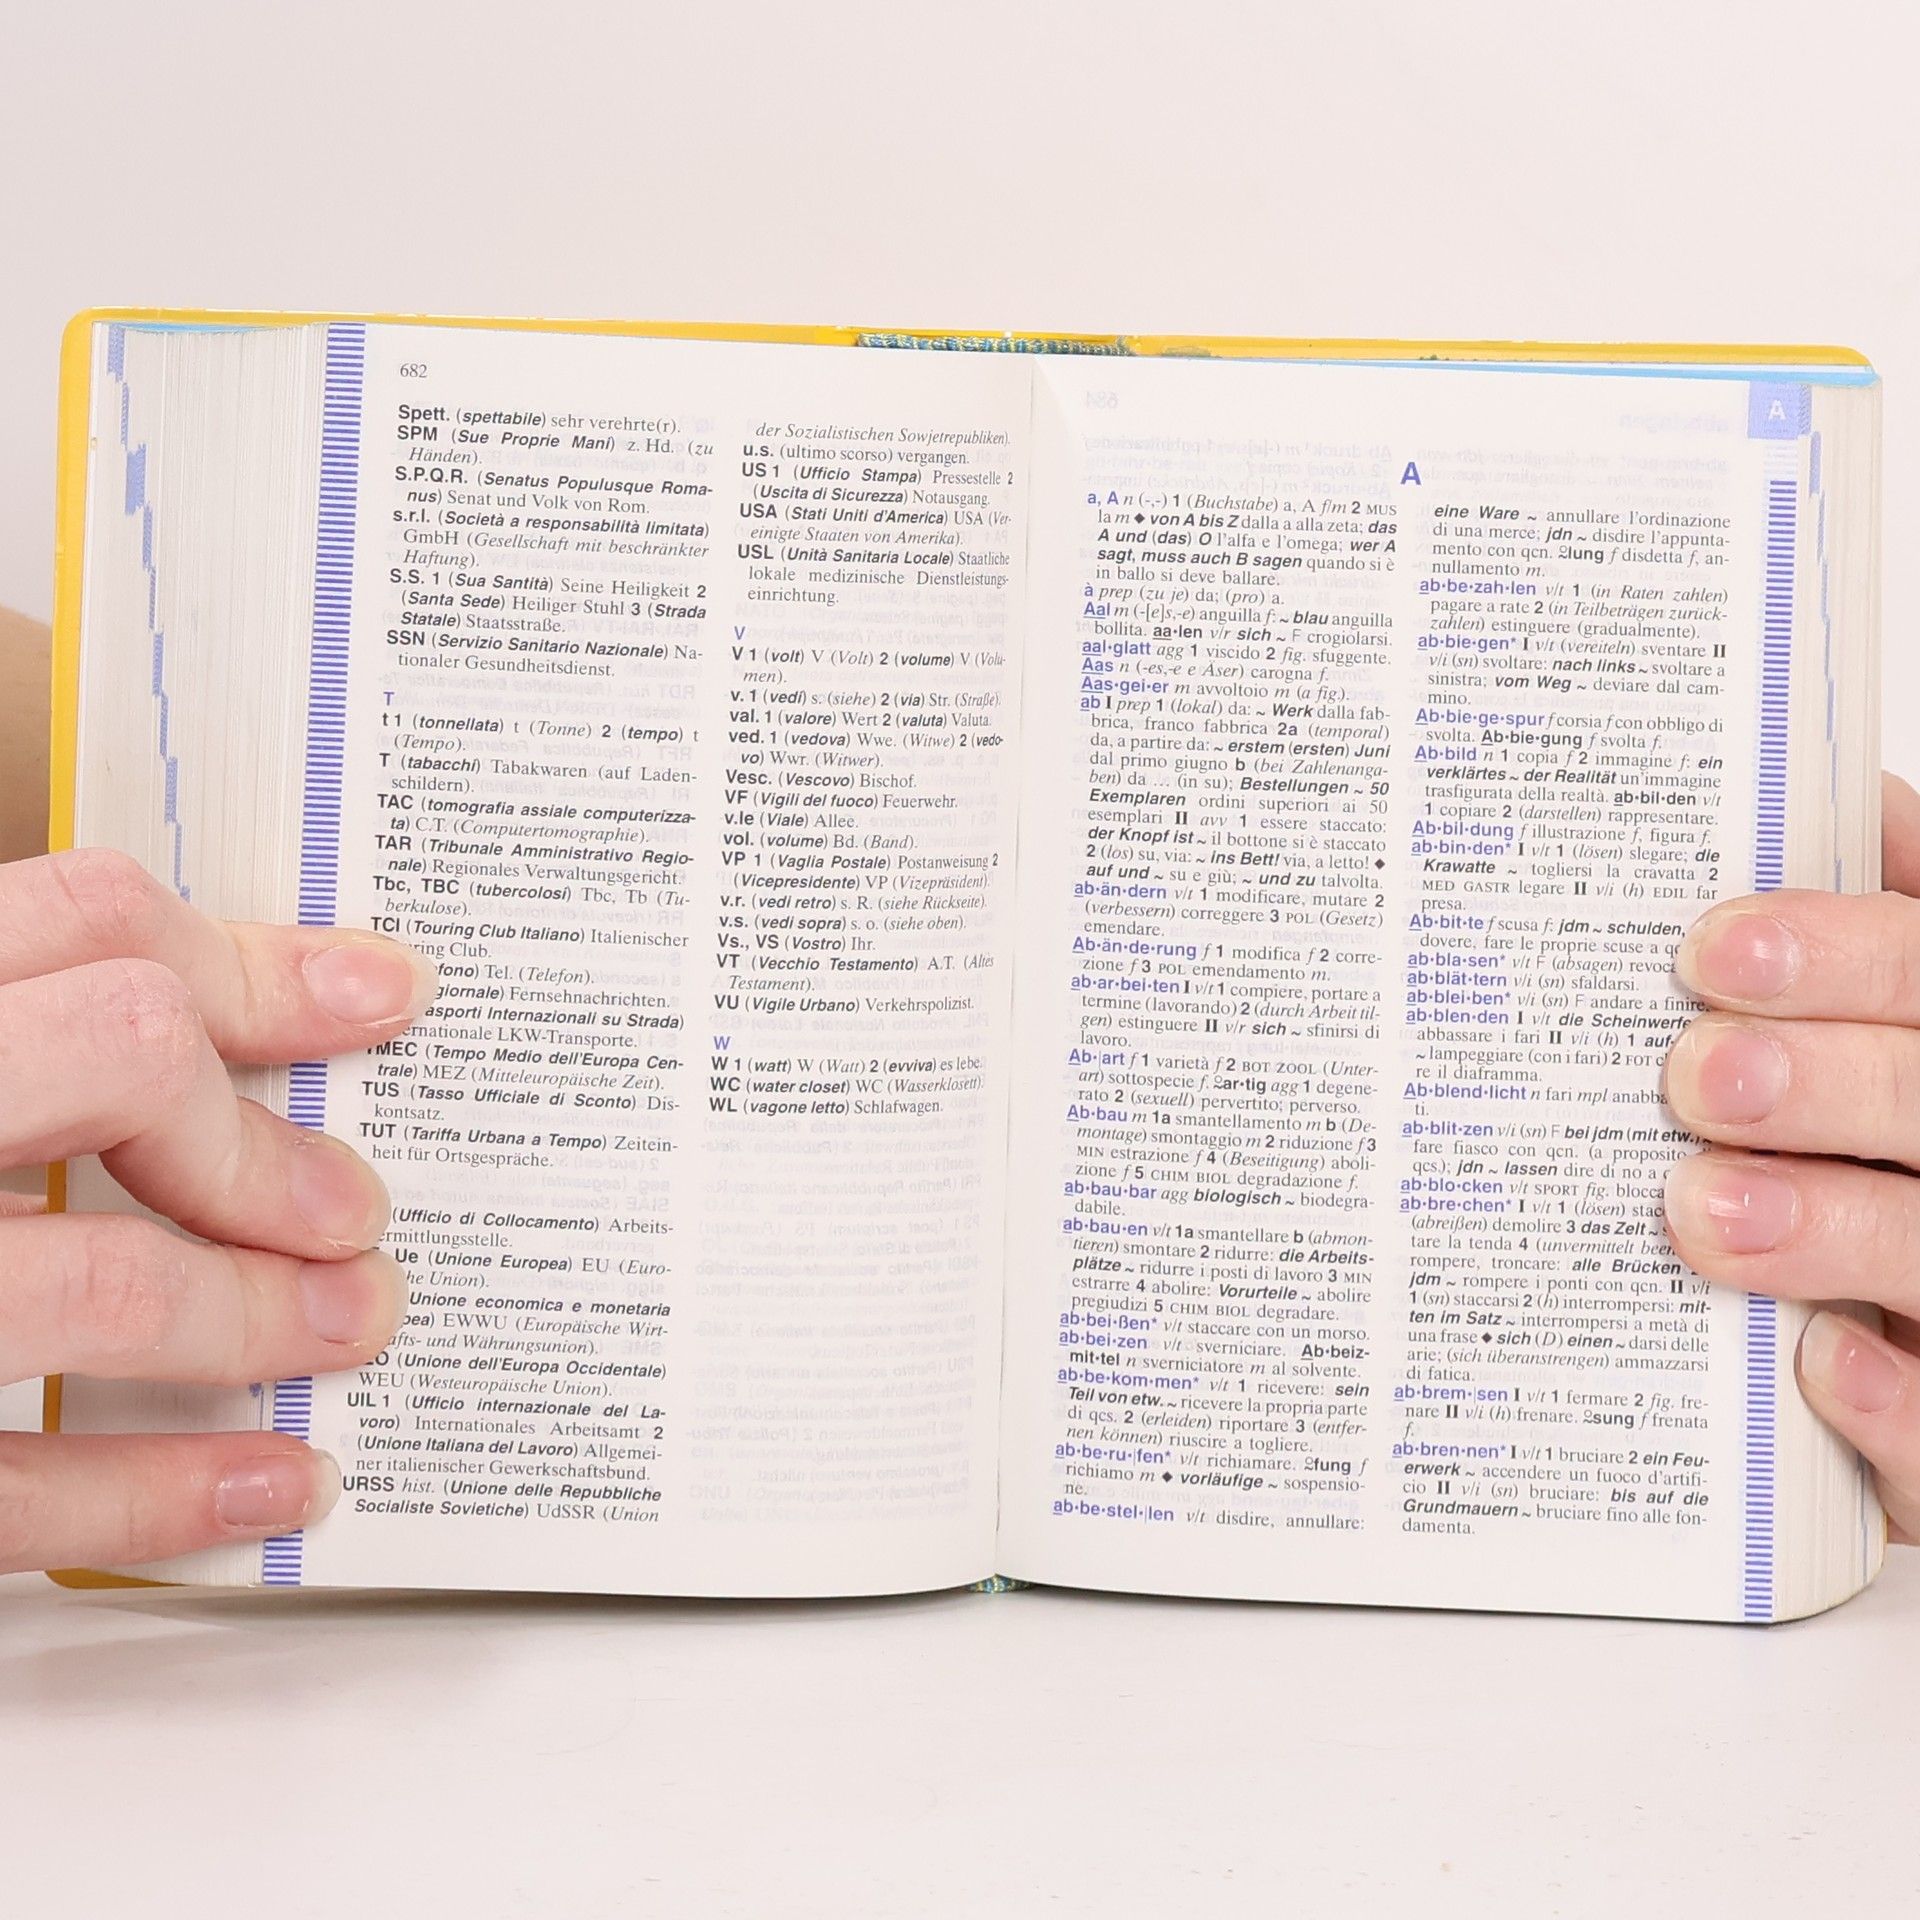 682
Spett. (spettabile) sehr verehrte(r).
SPM (Sue Proprie Mani) z. Hd. (zu
Händen).
S.P.Q.R. (Senatus Populusque Roma-
nus) Senat und Volk von Rom.
s.r.l. (Società a responsabilità limitata)
GmbH (Gesellschaft mit beschränkter
Haftung).
S.S. 1 (Sua Santità) Seine Heiligkeit 2
(Santa Sede) Heiliger Stuhl 3 (Strada
Statale) Staatsstraße.
SSN (Servizio Sanitario Nazionale) Na-
tionaler Gesundheitsdienst.
T
t 1 (tonnellata) t (Tonne) 2 (tempo) t
(Tempo).
T (tabacchi) Tabakwaren (auf Laden-
schildern).
TAC (tomografia assiale computerizza-
ta) C.T. (Computertomographie).
TAR (Tribunale Amministrativo Regio-
nale) Regionales Verwaltungsgericht.
Tbc, TBC (tubercolosi) Tbc, Tb (Tu-
berkulose).
TCI (Touring Club Italiano) Italienischer
ring Club.
fono) Tel. (Telefon).
giornale) Fernsehnachrichten.
asporti Internazionali su Strada)
ernationale LKW-Transporte.
TMEC (Tempo Medio dell'Europa Cen-
trale) MEZ (Mitteleuropäische Zeit).
TUS (Tasso Ufficiale di Sconto) Dis-
kontsatz.
TUT (Tariffa Urbana a Tempo) Zeitein-
heit für Ortsgespräche.
(Ufficio di Collocamento) Arbeits-
ermittlungsstelle.
Ue (Unione Europea) EU (Euro-
he Union).
Unione economica e monetaria
pea) EWWU (Europäische Wirt-
afts- und Währungsunion).
EO (Unione dell'Europa Occidentale)
WEU (Westeuropäische Union).
UIL 1 (Ufficio internazionale del La-
voro) Internationales Arbeitsamt 2
(Unione Italiana del Lavoro) Allgemei-
ner italienischer Gewerkschaftsbund.
URSS hist. (Unione delle Repubbliche
Socialiste Sovietiche) UdSSR (Union
der Sozialistischen Sowjetrepubliken).
u.s. (ultimo scorso) vergangen.
US 1 (Ufficio Stampa) Pressestelle 2
(Uscita di Sicurezza) Notausgang.
USA (Stati Uniti d'America) USA (Ver-
einigte Staaten von Amerika).
USL (Unità Sanitaria Locale) Staatliche
lokale medizinische Dienstleistungs-
einrichtung.
V
V 1 (volt) V (Volt) 2 (volume) V (Volu-
men).
v. 1 (vedi) s. (siehe) 2 (via) Str. (Straße).
val. 1 (valore) Wert 2 (valuta) Valuta.
ved. 1 (vedova) Wwe. (Witwe) 2 (vedo-
vo) Wwr. (Witwer).
Vesc. (Vescovo) Bischof.
VF (Vigili del fuoco) Feuerwehr.
v.le (Viale) Allee.
vol. (volume) Bd. (Band).
VP 1 (Vaglia Postale) Postanweisung 2
(Vicepresidente) VP (Vizepräsident).
v.r. (vedi retro) s. R. (siehe Rückseite).
v.s. (vedi sopra) s. o. (siehe oben).
Vs., VS (Vostro) Ihr.
VT (Vecchio Testamento) A.T. (Altes
Testament).
VU (Vigile Urbano) Verkehrspolizist.
W
W 1 (watt) W (Watt) 2 (evviva) es lebe.
WC (water closet) WC (Wasserklosett).
WL (vagone letto) Schlafwagen.
A
A
a, A n (-,-) 1 (Buchstabe) a, A f/m 2 MUS
la m ◆ von A bis Z dalla a alla zeta; das
A und (das) O l'alfa e l'omega; wer A
sagt, muss auch B sagen quando si è
in ballo si deve ballare.
à prep (zu je) da; (pro) a.
Aal m (-[e]s,-e) anguilla f: ~ blau anguilla
bollita. aa·len v/r sich ~ F crogiolarsi.
aal·glatt agg 1 viscido 2 fig. sfuggente.
Aas n (-es,-e e Äser) carogna f.
Aas·gei·er m avvoltoio m (a fig.).
ab I prep 1 (lokal) da: ~ Werk dalla fab-
brica, franco fabbrica 2a (temporal)
da, a partire da: ~ erstem (ersten) Juni
dal primo giugno b (bei Zahlenanga-
ben) da ... (in su); Bestellungen ~ 50
Exemplaren ordini superiori ai 50
esemplari II avv 1 essere staccato:
der Knopf ist ~ il bottone si è staccato
2 (los) su, via: ~ ins Bett! via, a letto! ◆
auf und ~ su e giù; ~ und zu talvolta.
ab·än·dern v/t 1 modificare, mutare 2
(verbessern) correggere 3 POL (Gesetz)
emendare.
Ab·än·de·rung f 1 modifica f 2 corre-
zione f 3 POL emendamento m.
ab·ar·bei·ten I v/t 1 compiere, portare a
termine (lavorando) 2 (durch Arbeit til-
gen) estinguere II v/r sich ~ sfinirsi di
lavoro.
Ab·|art f 1 varietà f 2 BOT ZOOL (Unter-
art) sottospecie f. 2ar·tig agg 1 degene-
rato 2 (sexuell) pervertito; perverso.
Ab·bau m 1a smantellamento m b (De-
montage) smontaggio m 2 riduzione f 3
MIN estrazione f 4 (Beseitigung) aboli-
zione f 5 CHIM BIOL degradazione f.
ab·bau·bar agg biologisch ~ biodegra-
dabile.
ab·bau·en v/t 1a smantellare b (abmon-
tieren) smontare 2 ridurre: die Arbeits-
plätze ~ ridurre i posti di lavoro 3 MIN
estrarre 4 abolire: Vorurteile ~ abolire
pregiudizi 5 CHIM BIOL degradare.
ab·bei·ßen* v/t staccare con un morso.
ab·bei·zen v/t sverniciare. Ab·beiz-
mit·tel n sverniciatore m al solvente.
ab·be·kom·men* v/t 1 ricevere: sein
Teil von etw. ~ ricevere la propria parte
di qcs. 2 (erleiden) riportare 3 (entfer-
nen können) riuscire a togliere.
ab·be·ru·|fen* v/t richiamare. 2fung f
richiamo m ◆ vorläufige ~ sospensio-
ne.
ab·be·stel·|len v/t disdire, annullare:
eine Ware ~ annullare l'ordinazione
di una merce; jdn ~ disdire l'appunta-
mento con qcn. 2lung f disdetta f, an-
nullamento m.
ab·be·zah·len v/t 1 (in Raten zahlen)
pagare a rate 2 (in Teilbeträgen zurück-
zahlen) estinguere (gradualmente).
ab·bie·gen* I v/t (vereiteln) sventare II
v/i (sn) svoltare: nach links ~ svoltare a
sinistra; vom Weg ~ deviare dal cam-
mino.
Ab·bie·ge·spur f corsia f con obbligo di
svolta. Ab·bie·gung f svolta f.
Ab·bild n 1 copia f 2 immagine f: ein
verklärtes ~ der Realität un'immagine
trasfigurata della realtà. ab·bil·den v/t
1 copiare 2 (darstellen) rappresentare.
Ab·bil·dung f illustrazione f, figura f.
ab·bin·den* I v/t 1 (lösen) slegare; die
Krawatte ~ togliersi la cravatta 2
MED GASTR legare II v/i (h) EDIL far
presa.
Ab·bit·te f scusa f: jdm ~ schulden,
dovere, fare le proprie scuse a qc
ab·bla·sen* v/t F (absagen) revoca
ab·blät·tern v/i (sn) sfaldarsi.
ab·blei·ben* v/i (sn) F andare a finire.
ab·blen·den I v/t die Scheinwerfe
abbassare i fari II v/i (h) 1 auf-
~ lampeggiare (con i fari) 2 FOT c
re il diaframma.
Ab·blend·licht n fari mpl anabba
ti.
ab·blit·zen v/i (sn) F bei jdm (mit etw.)
fare fiasco con qcn. (a proposito
qcs.); jdn ~ lassen dire di no a
ab·blo·cken v/t SPORT fig. blocca
ab·bre·chen* I v/t 1 (lösen) stac
(abreißen) demolire 3 das Zelt ~
tare la tenda 4 (unvermittelt been
rompere, troncare: alle Brücken
jdm ~ rompere i ponti con qcn. II v/i
1 (sn) staccarsi 2 (h) interrompersi: mit-
ten im Satz ~ interrompersi a metà di
una frase ◆ sich (D) einen ~ darsi delle
arie; (sich überanstrengen) ammazzarsi
di fatica.
ab·brem·|sen I v/t 1 fermare 2 fig. fre-
nare II v/i (h) frenare. 2sung f frenata
f.
ab·bren·nen* I v/t 1 bruciare 2 ein Feu-
erwerk ~ accendere un fuoco d'artifi-
cio II v/i (sn) bruciare: bis auf die
Grundmauern ~ bruciare fino alle fon-
damenta.